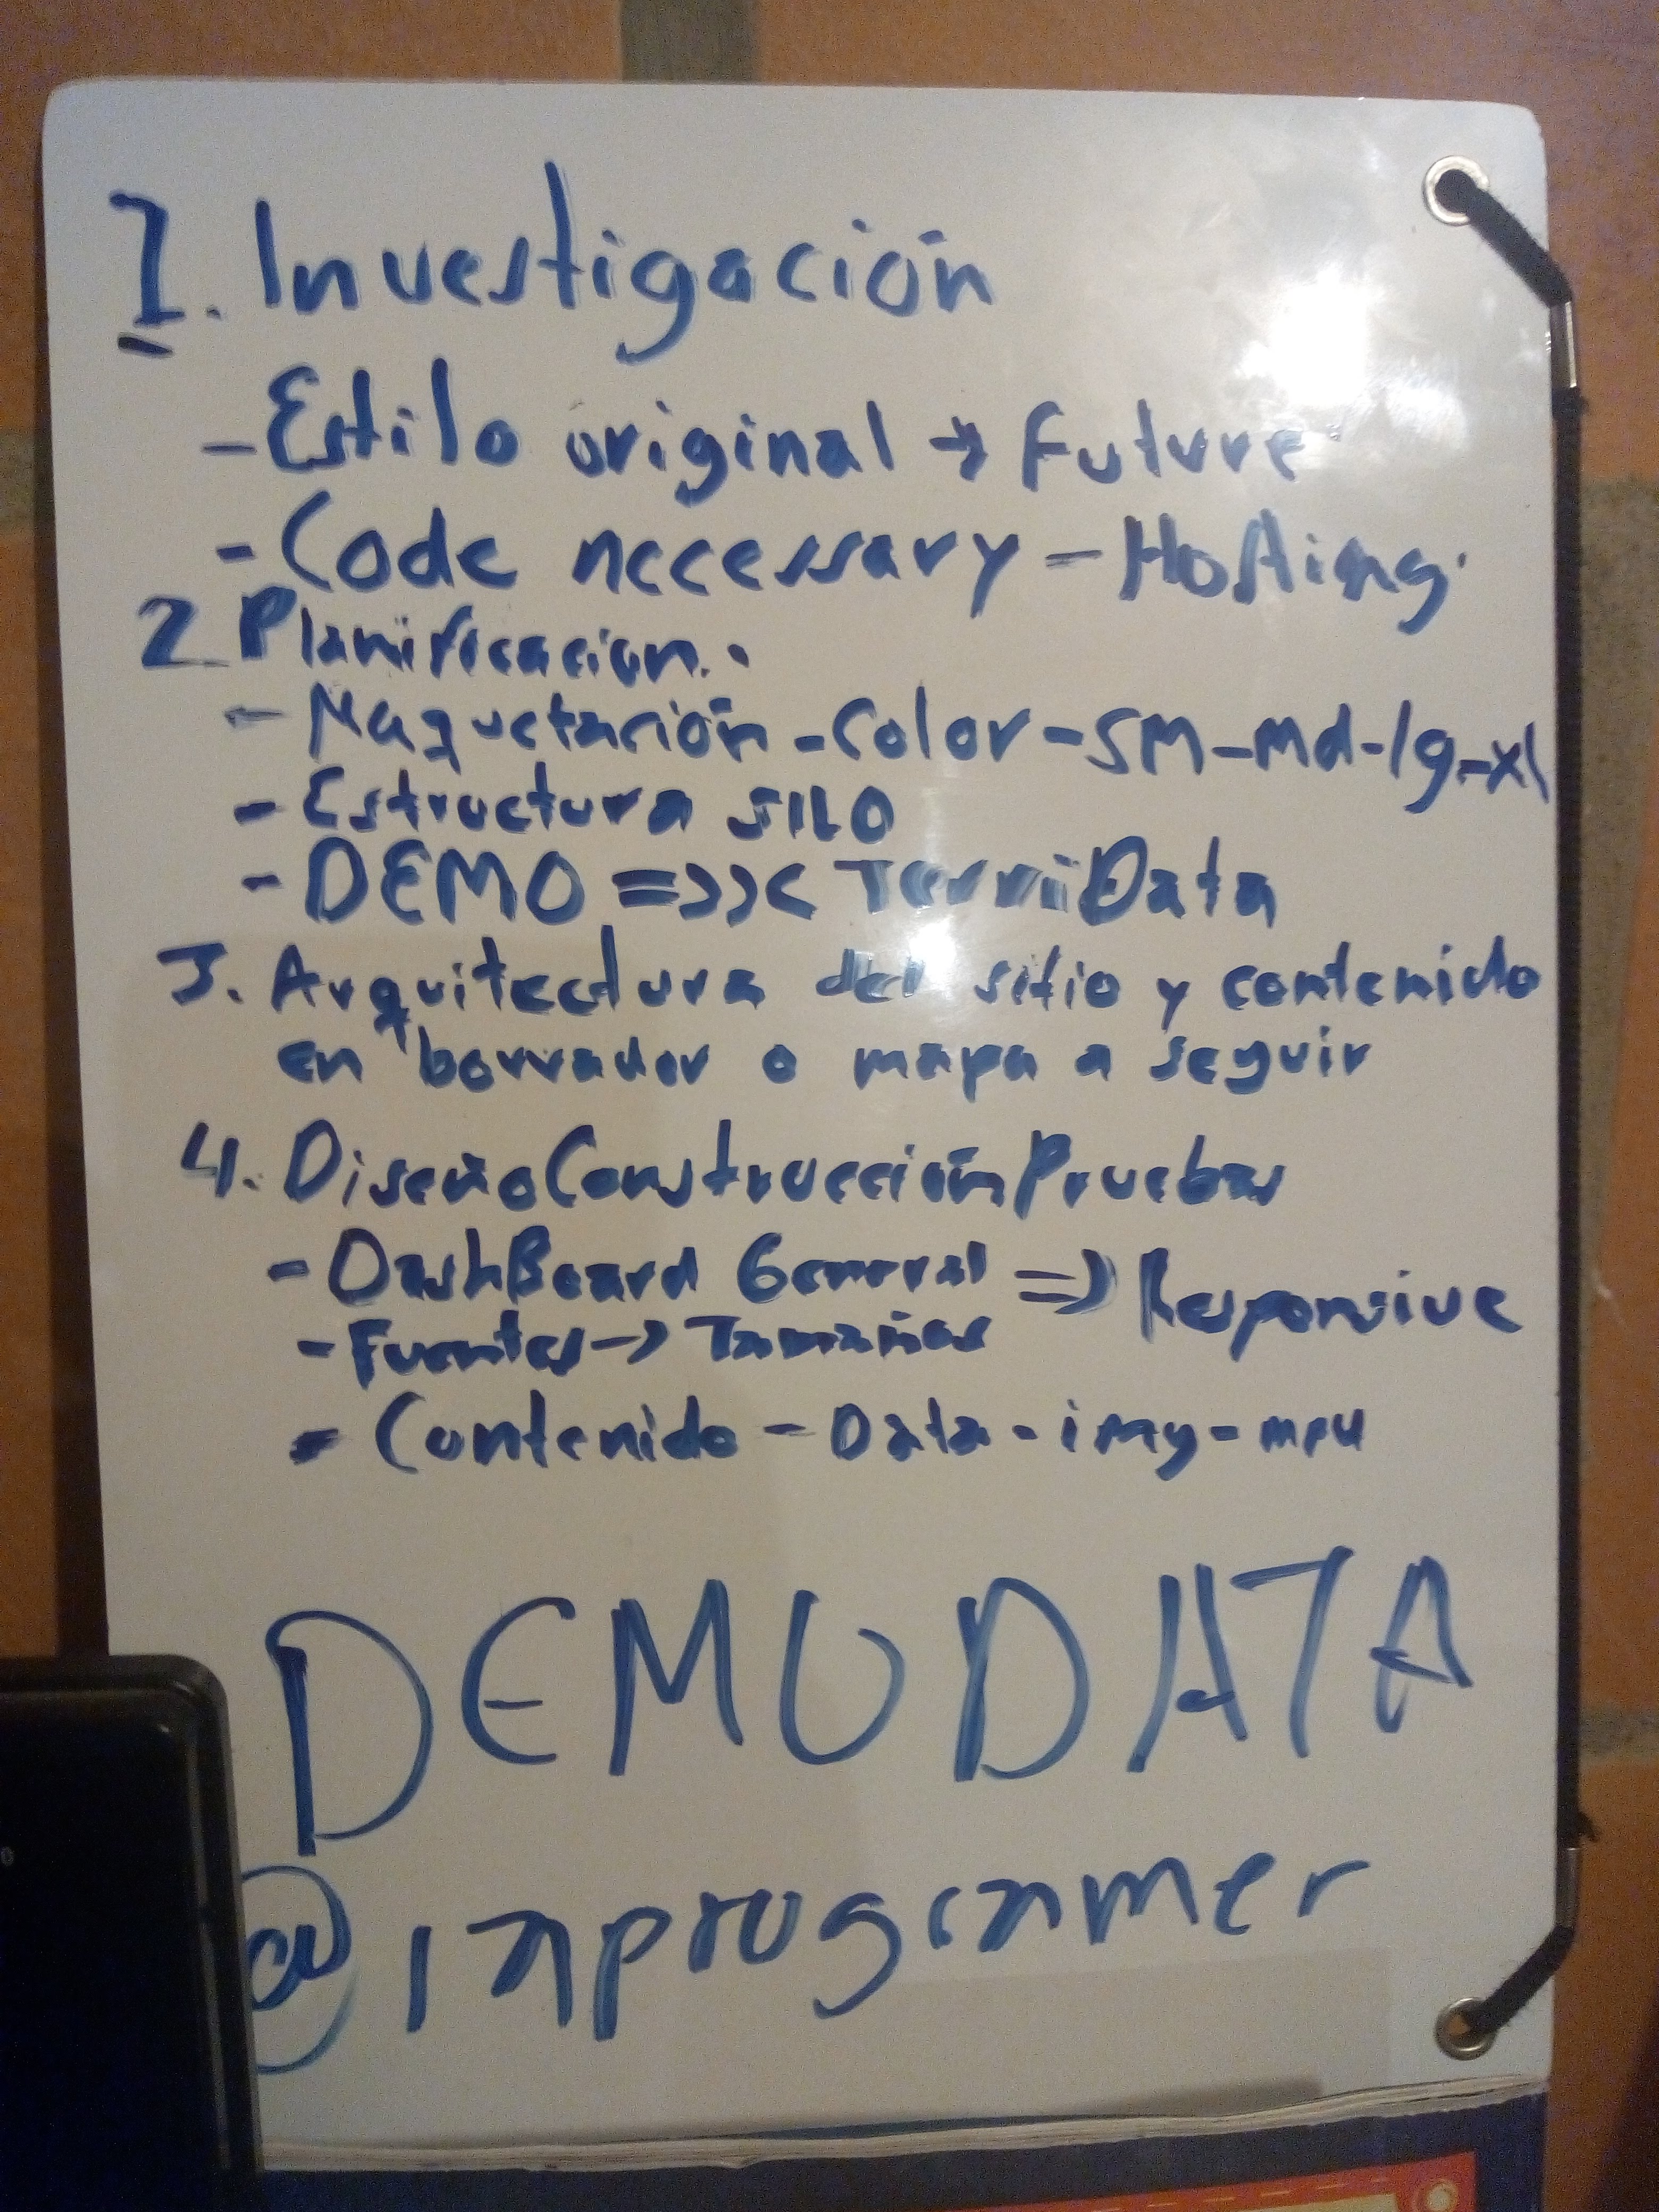 1. Investigación
- Estilo original → Future
- Code necessary - Hosting.
2. Planificacion.
- Maquetación - Color - SM - md - lg - xl
- Estructura SILO
- DEMO =>>< TerriData
3. Arquitectura del sitio y contenido
en borrador o mapa a seguir
4. DiseñoConstrucciónPruebas
- DashBoard General => Responsive
- Fuentes -> Tamaños
- Contenido - Data - img -
DEMODATA
@inprogramer